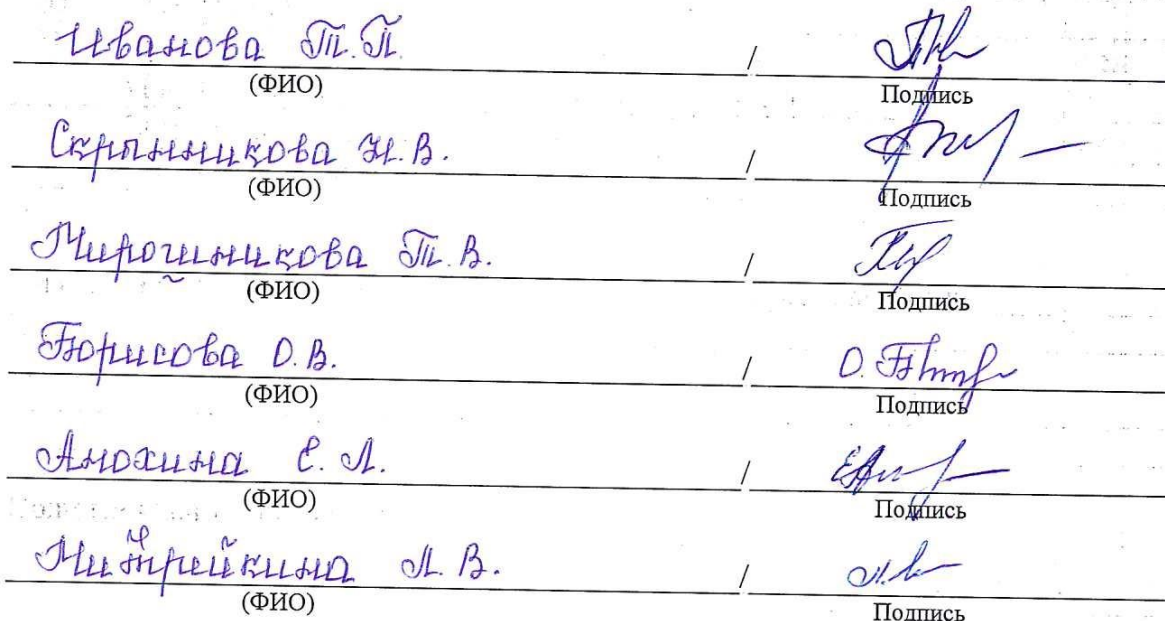 Иванова Т.П. /
(ФИО) Подпись
Скрынникова Н.В. /
(ФИО) Подпись
Мирошникова Т.В. /
(ФИО) Подпись
Борисова О.В. /
(ФИО) Подпись
Анохина Е.Л. /
(ФИО) Подпись
Митрейкина Л.В. /
(ФИО) Подпись